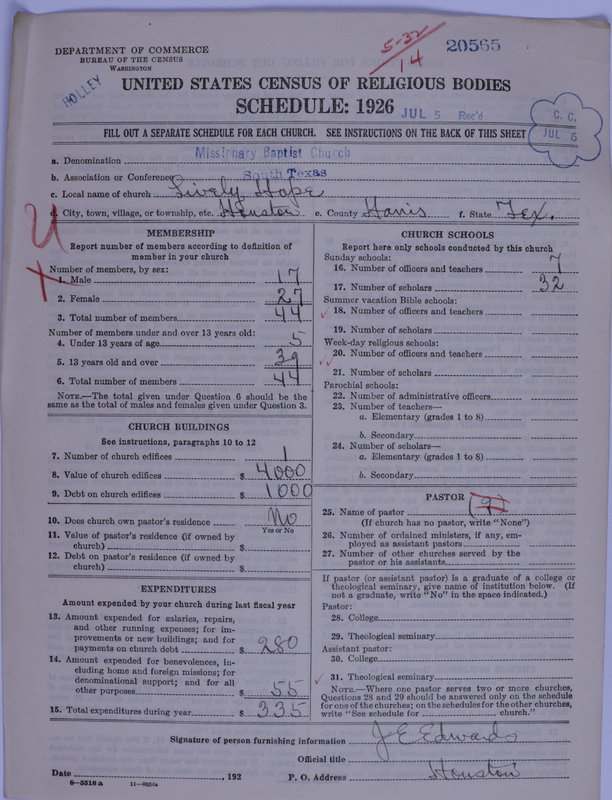 5-32
14
20565
DEPARTMENT OF COMMERCE
BUREAU OF THE CENSUS
WASHINGTON
HOLLEY
UNITED STATES CENSUS OF RELIGIOUS BODIES
SCHEDULE: 1926
JUL 5 Rec'd
C. C.
JUL 5
FILL OUT A SEPARATE SCHEDULE FOR EACH CHURCH. SEE INSTRUCTIONS ON THE BACK OF THIS SHEET
a. Denomination Missionary Baptist Church
b. Association or Conference South Texas
c. Local name of church Lively Hope
d. City, town, village, or township, etc. Houston e. County Harris f. State Tex.
MEMBERSHIP
Report number of members according to definition of
member in your church
Number of members, by sex:
1. Male 17
2. Female 27
3. Total number of members 44
Number of members under and over 13 years old:
4. Under 13 years of age 5
5. 13 years old and over 39
6. Total number of members 44
NOTE.—The total given under Question 6 should be the
same as the total of males and females given under Question 3.
CHURCH BUILDINGS
See instructions, paragraphs 10 to 12
7. Number of church edifices 1
8. Value of church edifices $ 4000
9. Debt on church edifices $ 1000
10. Does church own pastor's residence No
Yes or No
11. Value of pastor's residence (if owned by
church) $
12. Debt on pastor's residence (if owned by
church) $
EXPENDITURES
Amount expended by your church during last fiscal year
13. Amount expended for salaries, repairs,
and other running expenses; for im-
provements or new buildings; and for
payments on church debt $ 280
14. Amount expended for benevolences, in-
cluding home and foreign missions; for
denominational support; and for all
other purposes $ 55
15. Total expenditures during year $ 335
CHURCH SCHOOLS
Report here only schools conducted by this church
Sunday schools:
16. Number of officers and teachers 7
17. Number of scholars 32
Summer vacation Bible schools:
18. Number of officers and teachers
19. Number of scholars
Week-day religious schools:
20. Number of officers and teachers
21. Number of scholars
Parochial schools:
22. Number of administrative officers
23. Number of teachers—
a. Elementary (grades 1 to 8)
b. Secondary
24. Number of scholars—
a. Elementary (grades 1 to 8)
b. Secondary
PASTOR
25. Name of pastor
(If church has no pastor, write "None")
26. Number of ordained ministers, if any, em-
ployed as assistant pastors
27. Number of other churches served by the
pastor or his assistants
If pastor (or assistant pastor) is a graduate of a college or
theological seminary, give name of institution below. (If
not a graduate, write "No" in the space indicated.)
Pastor:
28. College
29. Theological seminary
Assistant pastor:
30. College
31. Theological seminary
NOTE.—Where one pastor serves two or more churches,
Questions 28 and 29 should be answered only on the schedule
for one of the churches; on the schedules for the other churches,
write "See schedule for church."
Signature of person furnishing information J E Edwards
Official title
Date , 192 P. O. Address Houston
8—5518 a 11—9054a